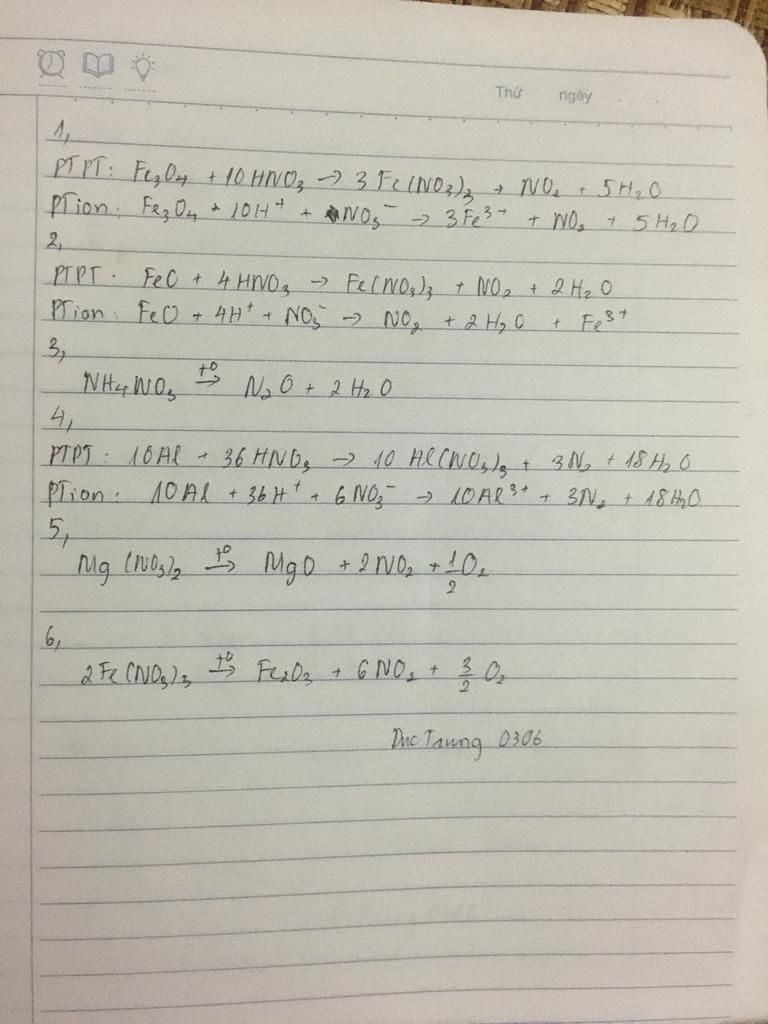 Thứ ngày
1,
PTPT: Fe₃O₄ + 10HNO₃ → 3Fe(NO₃)₃ + NO₂ + 5H₂O
PTion: Fe₃O₄ + 10H⁺ + NO₃⁻ → 3Fe³⁺ + NO₂ + 5H₂O
2,
PTPT: FeO + 4HNO₃ → Fe(NO₃)₃ + NO₂ + 2H₂O
PTion: FeO + 4H⁺ + NO₃⁻ → NO₂ + 2H₂O + Fe³⁺
3,
NH₄NO₃ →(t⁰) N₂O + 2H₂O
4,
PTPT: 10Al + 36HNO₃ → 10Al(NO₃)₃ + 3N₂ + 18H₂O
PTion: 10Al + 36H⁺ + 6NO₃⁻ → 10Al³⁺ + 3N₂ + 18H₂O
5,
Mg(NO₃)₂ →(t⁰) MgO + 2NO₂ + 1/2O₂
6,
2Fe(NO₃)₃ →(t⁰) Fe₂O₃ + 6NO₂ + 3/2 O₂
Duc Trung 0306